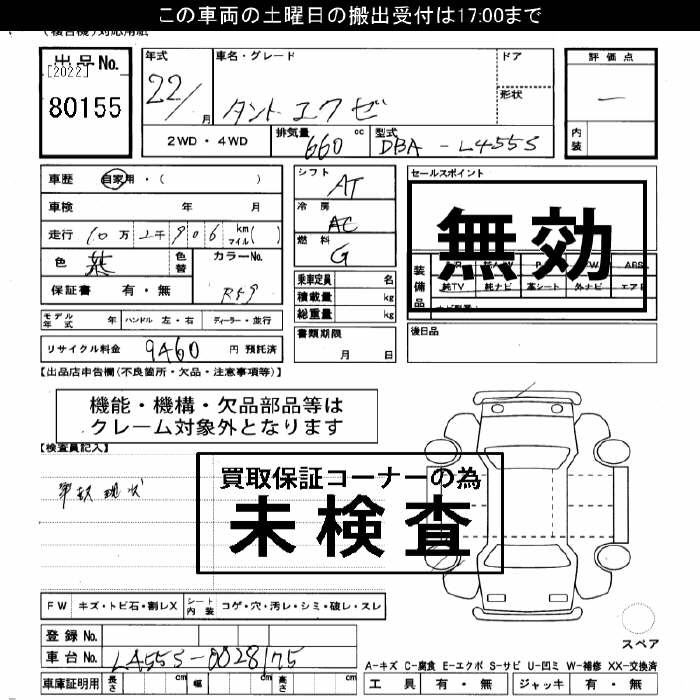 この車両の土曜日の搬出受付は17:00まで
出品No. [2022] 80155
年式 22/ 月
車名・グレード タント エグゼ
ドア
形状
評価点 —
内装
2WD・4WD
排気量 660 cc
型式 DBA-L455S
車歴 自家用・( )
車検 年 月
走行 10万 2千906 km マイル( )
色 紫 色替 カラーNo. R59
保証書 有・無
モデル年式 年 ハンドル 左・右 ディーラー・並行
リサイクル料金 9460 円 預託済
シフト AT
冷房 AC
燃料 G
乗車定員 名
積載量 kg
総重量 kg
書類期限 月 日
セールスポイント
無効
装備品 ABS
純TV 純ナビ 革シート 外ナビ エアB
後日品
【出品店申告欄(不良箇所・欠品・注意事項等)】
機能・機構・欠品部品等は
クレーム対象外となります
【検査員記入】
買取保証コーナーの為
未検査
事故現状
FW キズ・トビ石・割レX シート内装 コゲ・穴・汚レ・シミ・破レ・スレ
登録No.
車台No. L455S-0028175
車庫証明用 長さ cm 幅 cm 高さ cm
スペア
A-キズ C-腐食 E-エクボ S-サビ U-凹ミ W-補修 XX-交換済
工具 有・無 ジャッキ 有・無